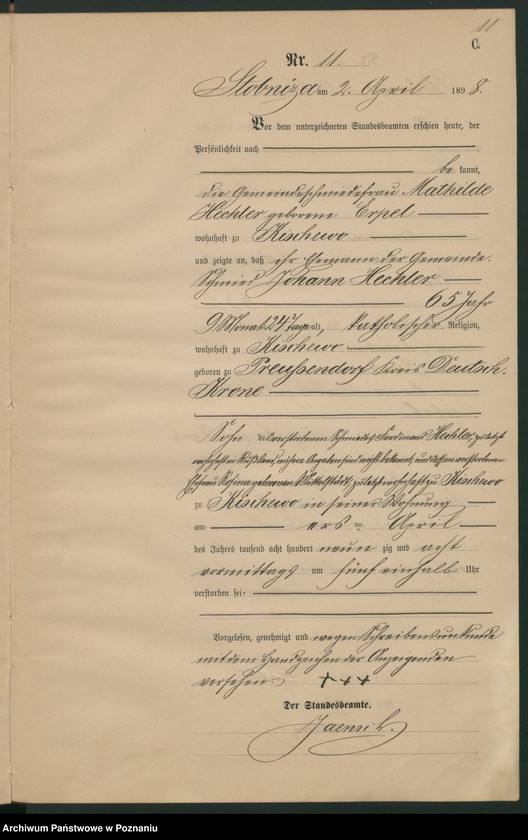 11
C.
Nr. 11.
Stobniza am 2. April 1898.
Vor dem unterzeichneten Standesbeamten erschien heute, der
Persönlichkeit nach
be kannt,
die Gemeindeschmiedefrau Mathilde
Hechler geborene Erpel
wohnhaft zu Kischewo
und zeigte an, daß ihr Ehemann der Gemeinde-
Schmied Johann Hechler
65 Jahr
9 Monat 24 Tage alt, katholischer Religion,
wohnhaft zu Kischewo
geboren zu Preußendorf Kreis Deutsch-
Krone
Sohn des verstorbenen Schmiedes Ferdinand Hechler, zuletzt
wohnhaft in Rußland, nähere Angaben sind nicht bekannt, und dessen verstorbenen
Ehefrau geborenen Mittelstädt, zuletzt wohnhaft zu Kischewo
zu Kischewo in seiner Wohnung
am ers ten April
des Jahres tausend acht hundert neun zig und acht
vormittags um fünf einhalb Uhr
verstorben sei.
Vorgelesen, genehmigt und wegen Schreibensunkunde
mit dem Handzeichen der Anzeigenden
versehen. +++
Der Standesbeamte.
Archiwum Państwowe w Poznaniu